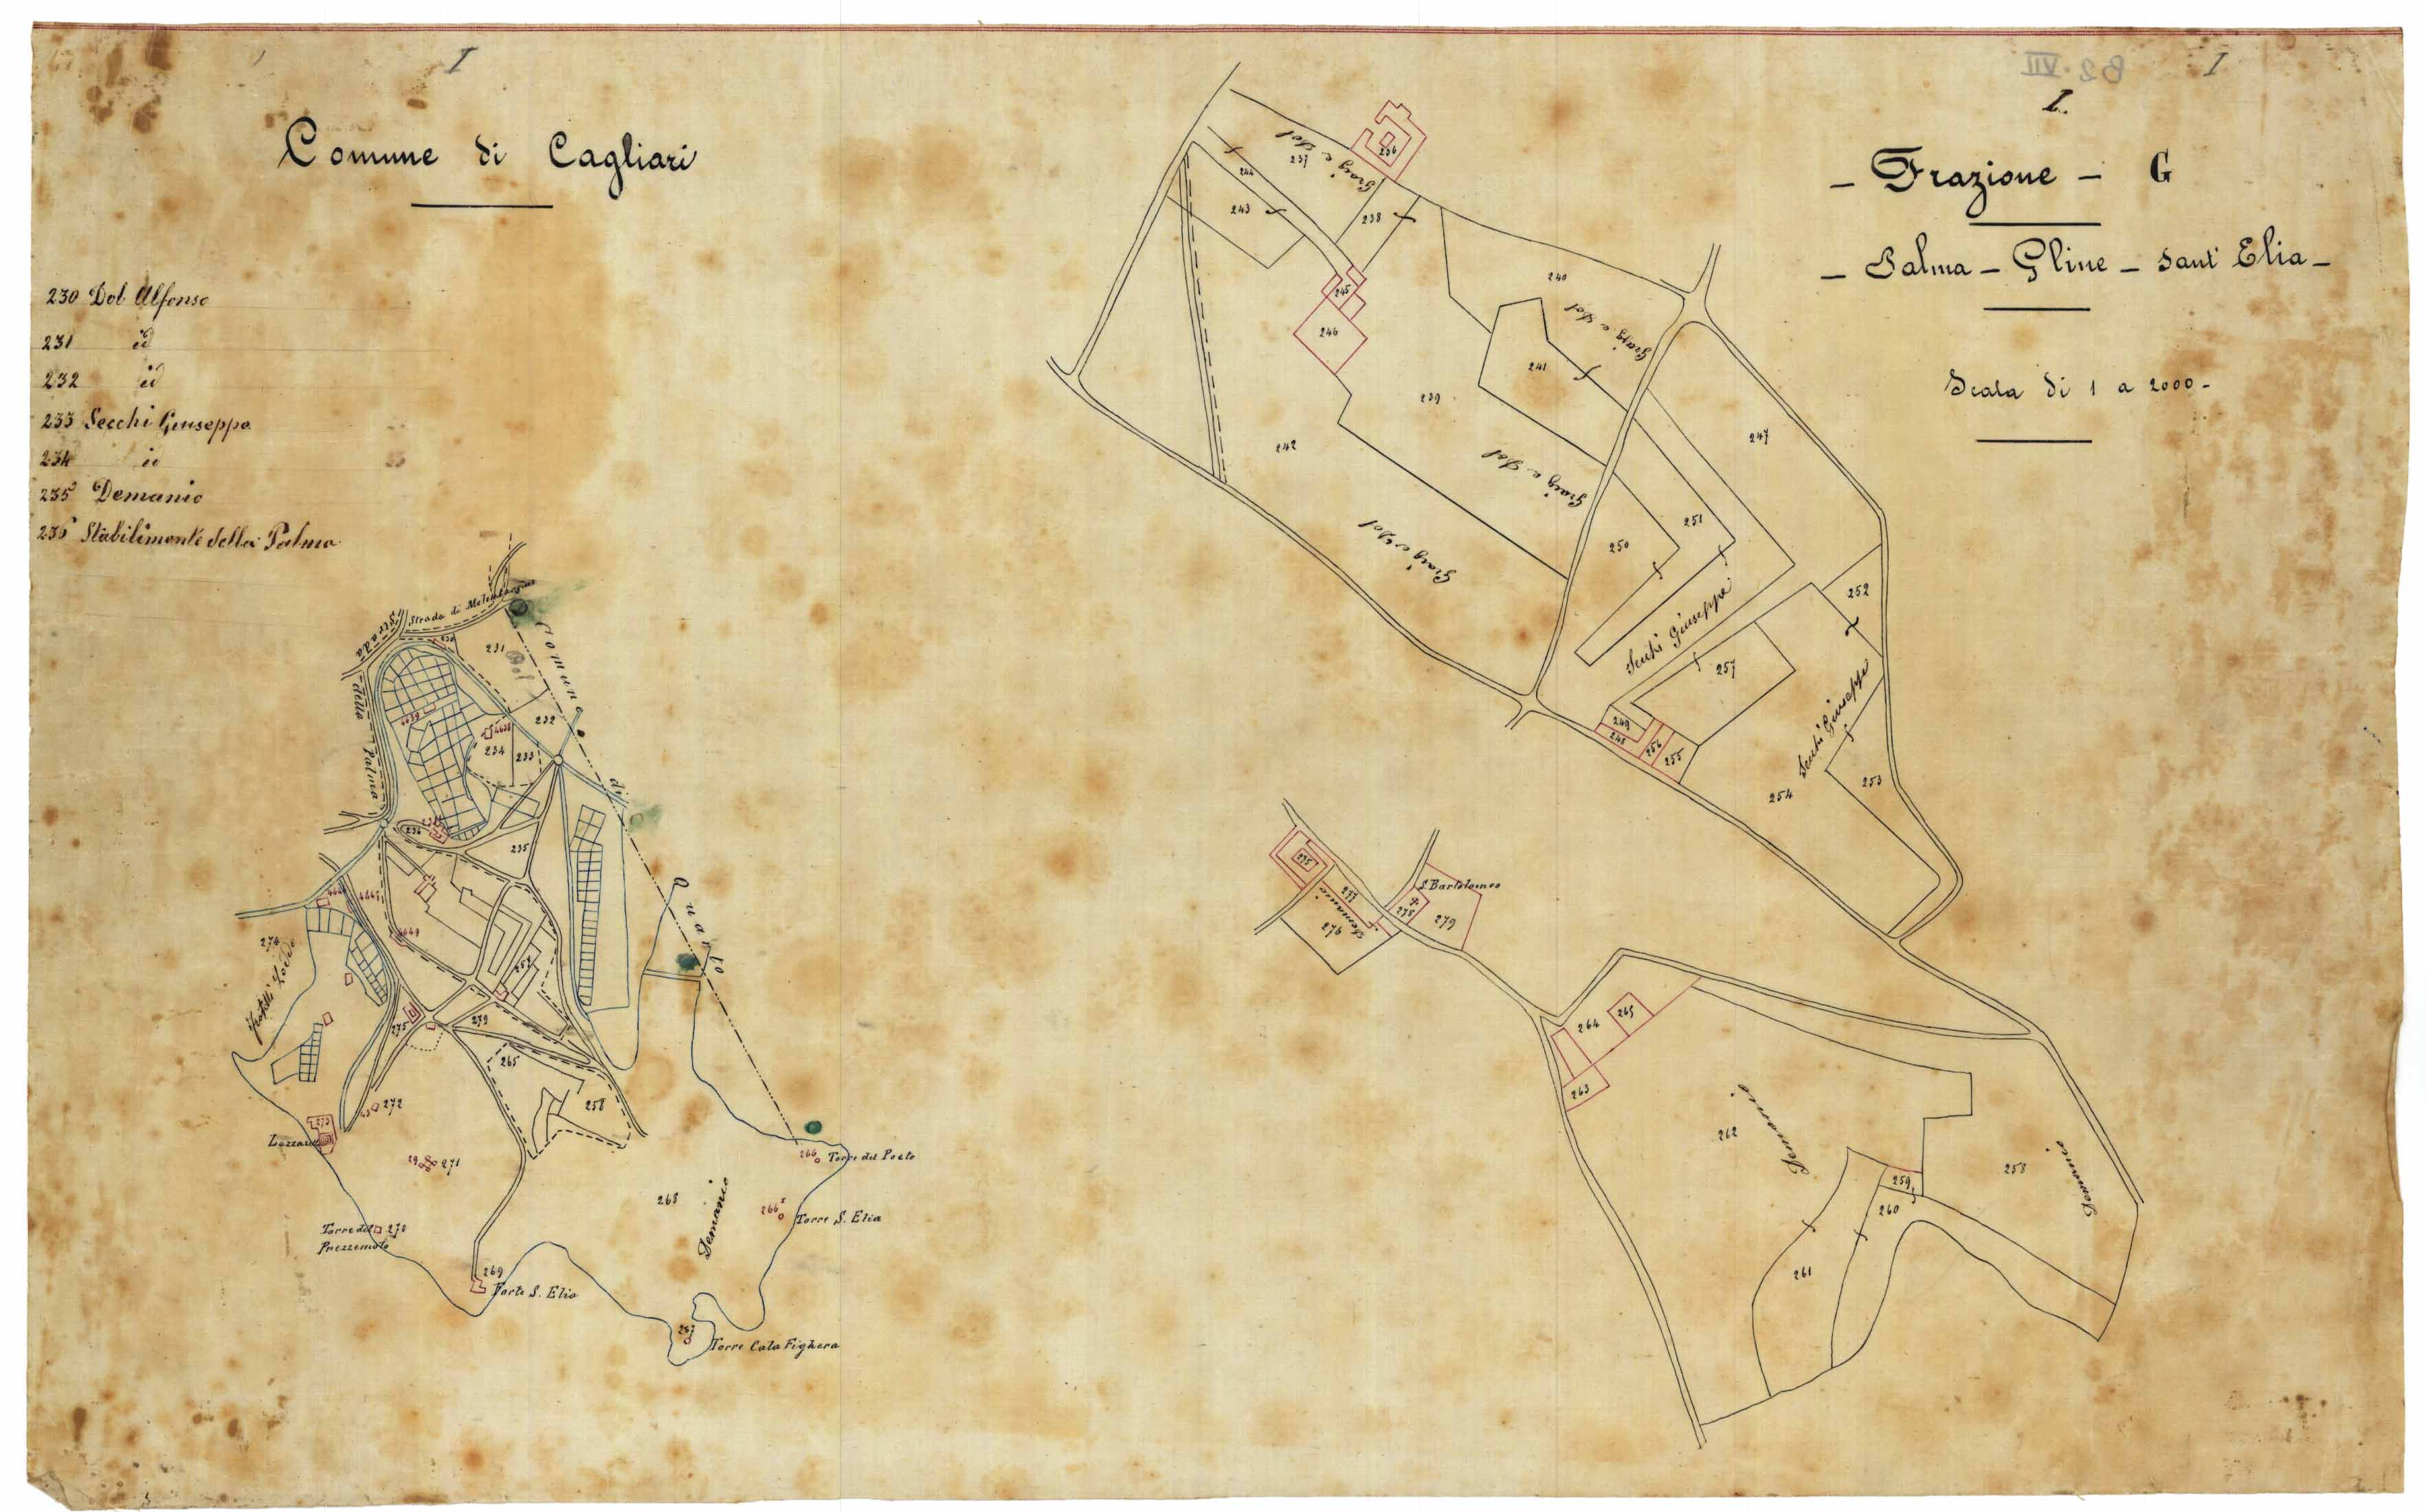 I
Comune di Cagliari
230 Dol Alfonso
231 id
232 id
233 Secchi Giuseppe
234 id
235 Demanio
236 Stabilimento della Palma
82.VII
I
I.
- Frazione - G
- Palma - Gline - Sant' Elia -
Scala di 1 a 2000 -
Strada di
Strada
della
Palma
Comune
di
Quarto
230
231
Dol
232
4639
4638
234
233
236
235
4649
257
274
Fratelli
275
279
265
258
272
273
271
268
Demanio
266
Torre del Poeto
266
Torre S. Elia
Torre del 270
Prezzemolo
269
Forte S. Elia
267
Torre Cala Fighera
236
237
244
243
238
245
246
240
241
239
242
247
251
250
252
Secchi Giuseppe
257
249
248
256
255
254
Secchi Giuseppe
253
275
277
Demanio
276
S. Bartolomeo
278
279
264
265
263
262
Demanio
258
Demanio
259
260
261